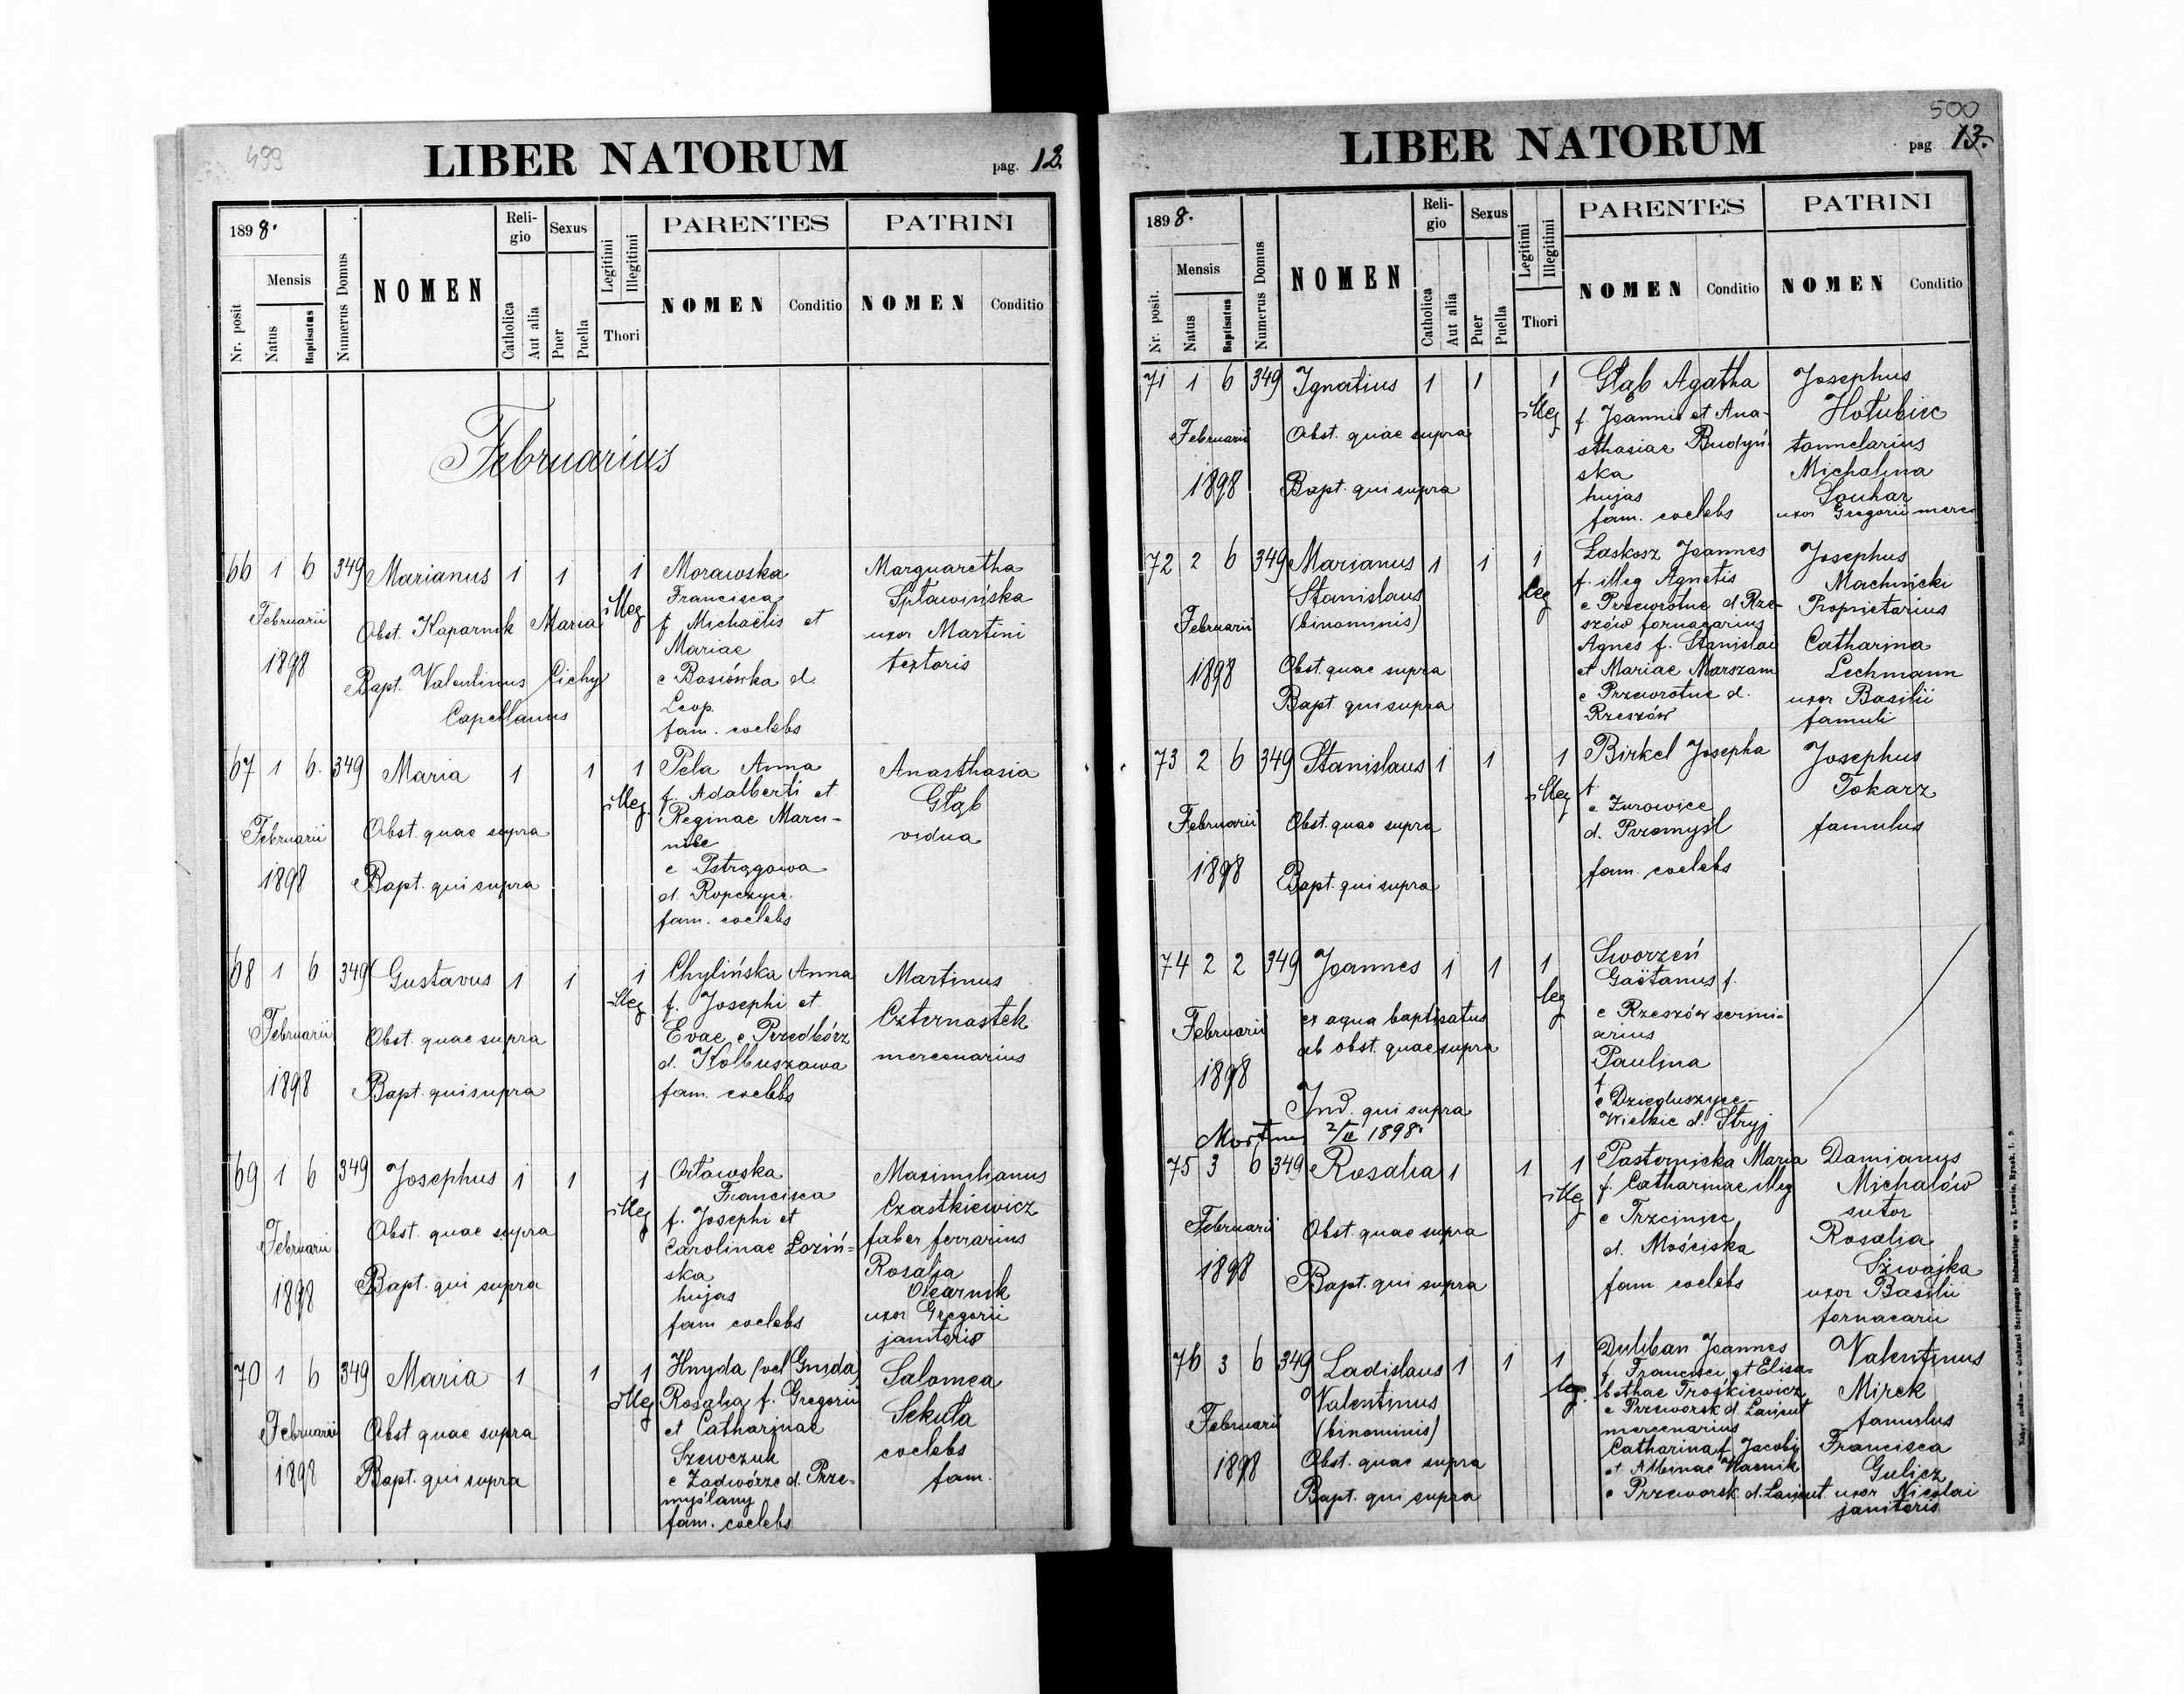 499
LIBER NATORUM
pag. 12.
1898.
Nr. posit
Mensis
Natus
Baptisatus
Numerus Domus
NOMEN
Reli-
gio
Catholica
Aut alia
Sexus
Puer
Puella
Legitimi
Illegitimi
Thori
PARENTES
NOMEN
Conditio
PATRINI
NOMEN
Conditio
Februarius
66 1 6 349 Marianus 1 1 1
Februarii
1898
Obst. Kaparnik Maria illeg
Bapt. Valentinus Cichy
Capellanus
Morawska
Francisca
f. Michaëlis et
Mariae
e Basiówka d.
Leop.
fam. coelebs
Marguaretha
Spławińska
uxor Martini
textoris
67 1 6. 349 Maria 1 1 1
illeg.
Februarii
1898
Obst. quae supra
Bapt. qui supra
Pela Anna
f. Adalberti et
Reginae Marci-
niec
e Pstrągowa
d. Ropczyce
fam. coelebs
Anasthasia
Głąb
vidua
68 1 6 349 Gustavus 1 1 1
illeg
Februarii
1898
Obst. quae supra
Bapt. qui supra
Chylińska Anna
f. Josephi et
Evae e Przedbórz
d. Kolbuszawa
fam. coelebs
Martinus
Czternastek
mercenarius
69 1 6 349 Josephus 1 1 1
illeg
Februarii
1898
Obst. quae supra
Bapt. qui supra
Orławska
Francisca
f. Josephi et
Carolinae Łoziń-
ska
hujas
fam coelebs
Maximilianus
Czastkiewicz
faber ferrarius
Rosalia
Olearnik
uxor Gregorii
janitoris
70 1 6 349 Maria 1 1 1
illeg
Februarii
1898
Obst quae supra
Bapt. qui supra
Hnyda (vel Gnida)
Rosalia f. Gregorii
et Catharinae
Szewczuk
e Zadwórze d. Prze-
myślany
fam. coelebs
Salomea
Sekuła
coelebs
fam.
500
LIBER NATORUM
pag 13.
1898.
Nr. posit.
Mensis
Natus
Baptisatus
Numerus Domus
NOMEN
Reli-
gio
Catholica
Aut alia
Sexus
Puer
Puella
Legitimi
Illegitimi
Thori
PARENTES
NOMEN
Conditio
PATRINI
NOMEN
Conditio
71 1 6 349 Ignatius 1 1 1
illeg
Februarii
1898
Obst. quae supra
Bapt. qui supra
Głąb Agatha
f. Joannis et Ana-
sthasiae Budyń-
ska
hujas
fam. coelebs
Josephus
Hołubiec
tannelarius
Michalina
Souhar
uxor Gregorii merce
72 2 6 349 Marianus 1 1 1
Stanislaus leg
(binominis)
Februarii
1898
Obst. quae supra
Bapt. qui supra
Laskosz Joannes
f. illeg Agnetis
e Przewrotne d Rze-
szów fornacarius
Agnes f. Stanislai
et Mariae Marszam
e Przewrotne d.
Rzeszów
Josephus
Machnicki
Proprietarius
Catharina
Lechmann
uxor Basilii
famuli
73 2 6 349 Stanislaus 1 1 1
illeg
Februarii
1898
Obst. quae supra
Bapt. qui supra
Birkel Josepha
f.
e Żurowice
d. Przemyśl
fam. coelebs
Josephus
Tokarz
famulus
74 2 2 349 Joannes 1 1 1
leg
Februarii
1898
ex aqua baptisatus
ab obst. quae supra
Ind. qui supra
Mortuus 2/II 1898.
Sworzeń
Gaëtanus f.
e Rzeszów scrini-
arius
Paulina
f.
e Dzieduszyce-
Wielkie d. Stryj
75 3 6 349 Rosalia 1 1 1
illeg
Februarii
1898
Obst. quae supra
Bapt. qui supra
Pasternicka Maria
f. Catharinae illeg
e Trzciniec
d. Mościska
fam. coelebs
Damianus
Michałów
sutor
Rosalia
Szwajka
uxor Basilii
fornacarii
76 3 6 349 Ladislaus 1 1 1
Valentinus leg.
(binominis)
Februarii
1898
Obst. quae supra
Bapt. qui supra
Duliban Joannes
f. Francisci et Elisa-
bethae Troskiewicz
e Przeworsk d. Łańcut
mercenarius
Catharina f. Jacobi
et Albinae Wacnik
e Przeworsk d. Łańcut
Valentinus
Mirek
famulus
Francisca
Gulicz
uxor Nicolai
janitoris